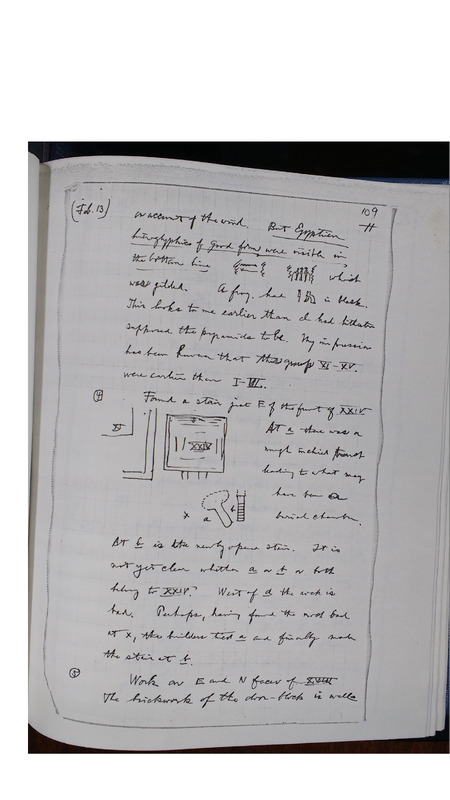 109
(Feb. 13)
on account of the wind. But Egyptian
hieroglyphics of good form were visible in
the bottom line which
was gilded. A frag. had in black.
This looks to me earlier than I had hitherto
supposed the pyramids to be. My impression
has been that the group XI-XV.
were earlier than I-VI.
④ Found a stair just E of the front of XXIV
At a there was a
XI
XXIV
rough inclined
leading to what may
have been a
burial chamber.
x a b
At b is the newly opened stair. It is
not yet clear whether a or b or both
belong to XXIV. West of a the rock is
bad. Perhaps, having found the rock bad
at x, the builders tried a and finally made
the stair at b.
⑤ Work on E and N faces of
The brickwork of the door-block is well